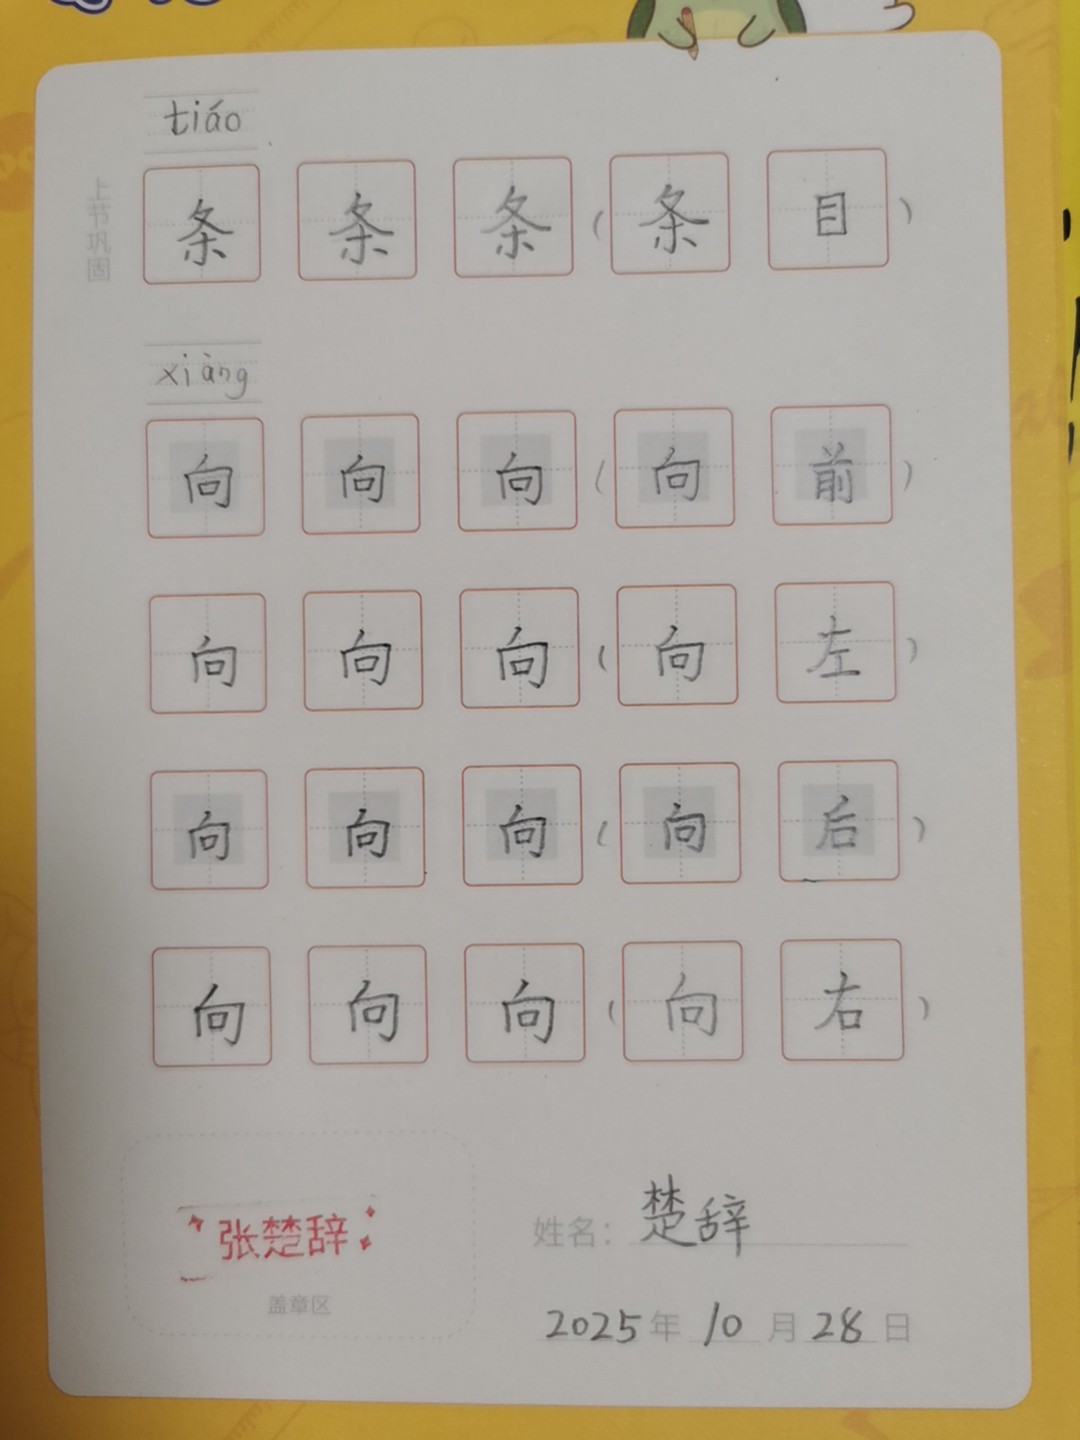 tiáo
上节巩固
条 条 条 ( 条 目 )
xiàng
向 向 向 ( 向 前 )
向 向 向 ( 向 左 )
向 向 向 ( 向 后 )
向 向 向 ( 向 右 )
张楚辞
盖章区
姓名: 楚辞
2025年 10 月 28 日